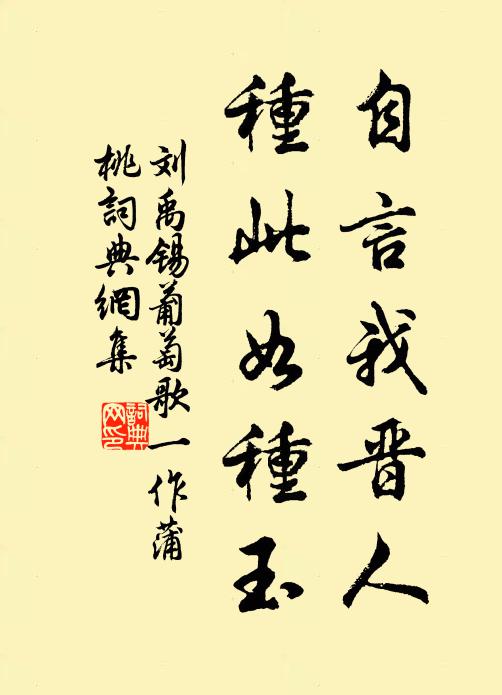 自言我晋人
種此如種玉
刘禹锡葡萄歌一作蒲
桃詞典網集
詞典
网印